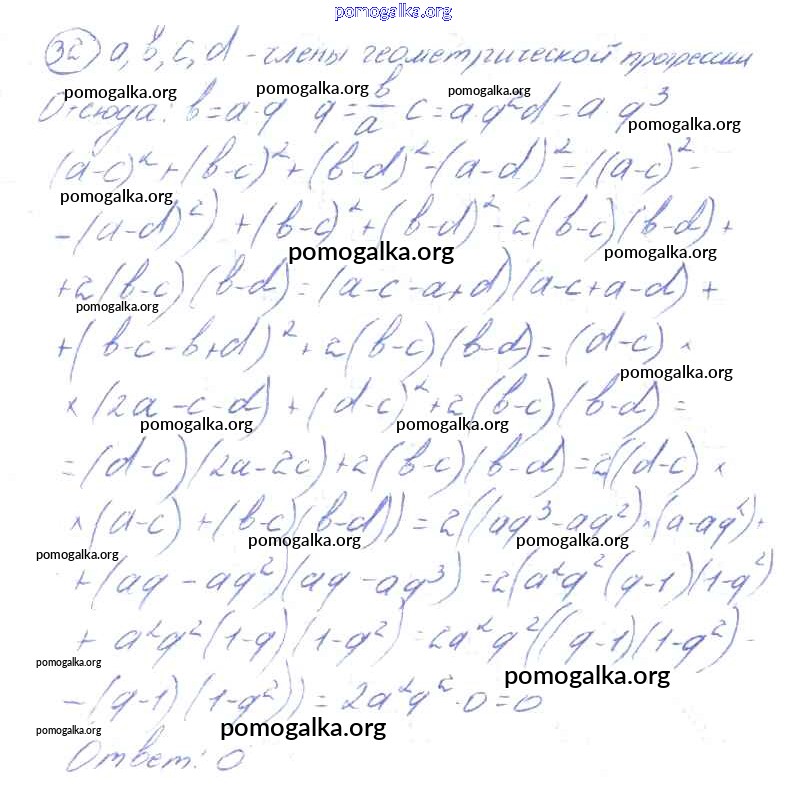 pomogalka.org
32) a, b, c, d - члены геометрической прогрессии
pomogalka.org pomogalka.org pomogalka.org
Отсюда: b = a·q q = b/a c = a·q² d = a·q³
pomogalka.org
(a-c)² + (b-c)² + (b-d)² - (a-d)² = ((a-c)² -
pomogalka.org
- (a-d)²) + (b-c)² + (b-d)² - 2(b-c)(b-d) +
pomogalka.org pomogalka.org
+ 2(b-c)(b-d) = (a-c-a+d)(a-c+a-d) +
pomogalka.org
+ (b-c-b+d)² + 2(b-c)(b-d) = (d-c) ×
pomogalka.org
× (2a-c-d) + (d-c)² + 2(b-c)(b-d) =
pomogalka.org pomogalka.org
= (d-c)(2a-2c) + 2(b-c)(b-d) = 2((d-c) ×
× (a-c) + (b-c)(b-d)) = 2((aq³-aq²)×(a-aq²) +
pomogalka.org pomogalka.org pomogalka.org
+ (aq-aq²)(aq-aq³) = 2(a²q²(q-1)(1-q²)
+ a²q²(1-q)(1-q²) = 2a²q²((q-1)(1-q²) -
pomogalka.org pomogalka.org
- (q-1)(1-q²)) = 2a²q²·0 = 0
pomogalka.org pomogalka.org
Ответ: 0